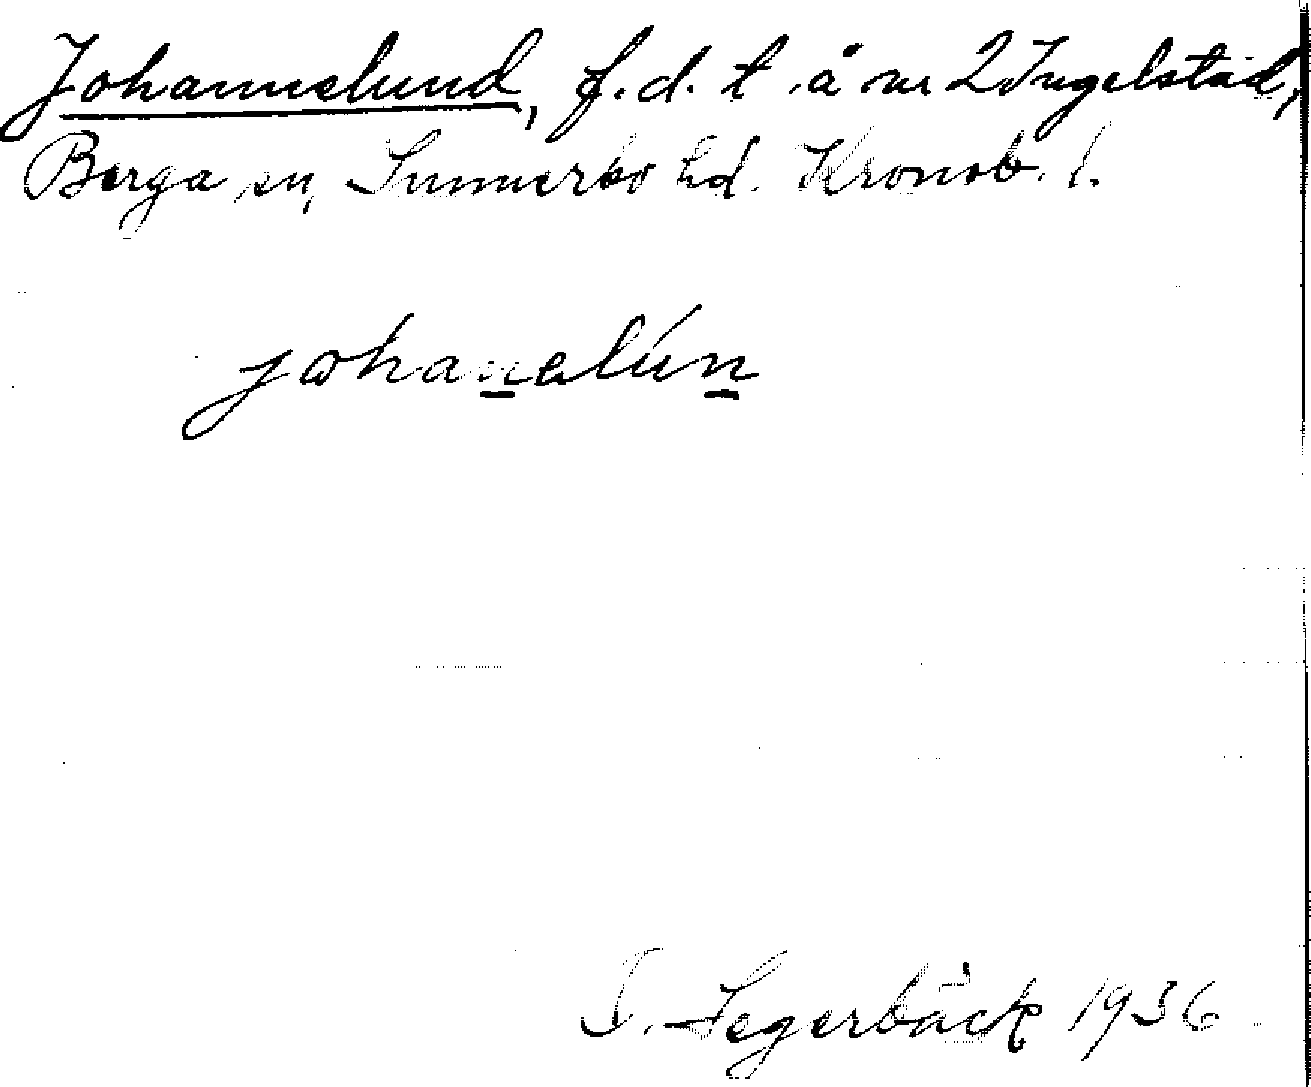 Johannelund, f.d. t. å nr 2 Ingelstad,
Berga sn, Sunnerbo hd. Kronob. l.
johanelún
I. Segerbäck 1936